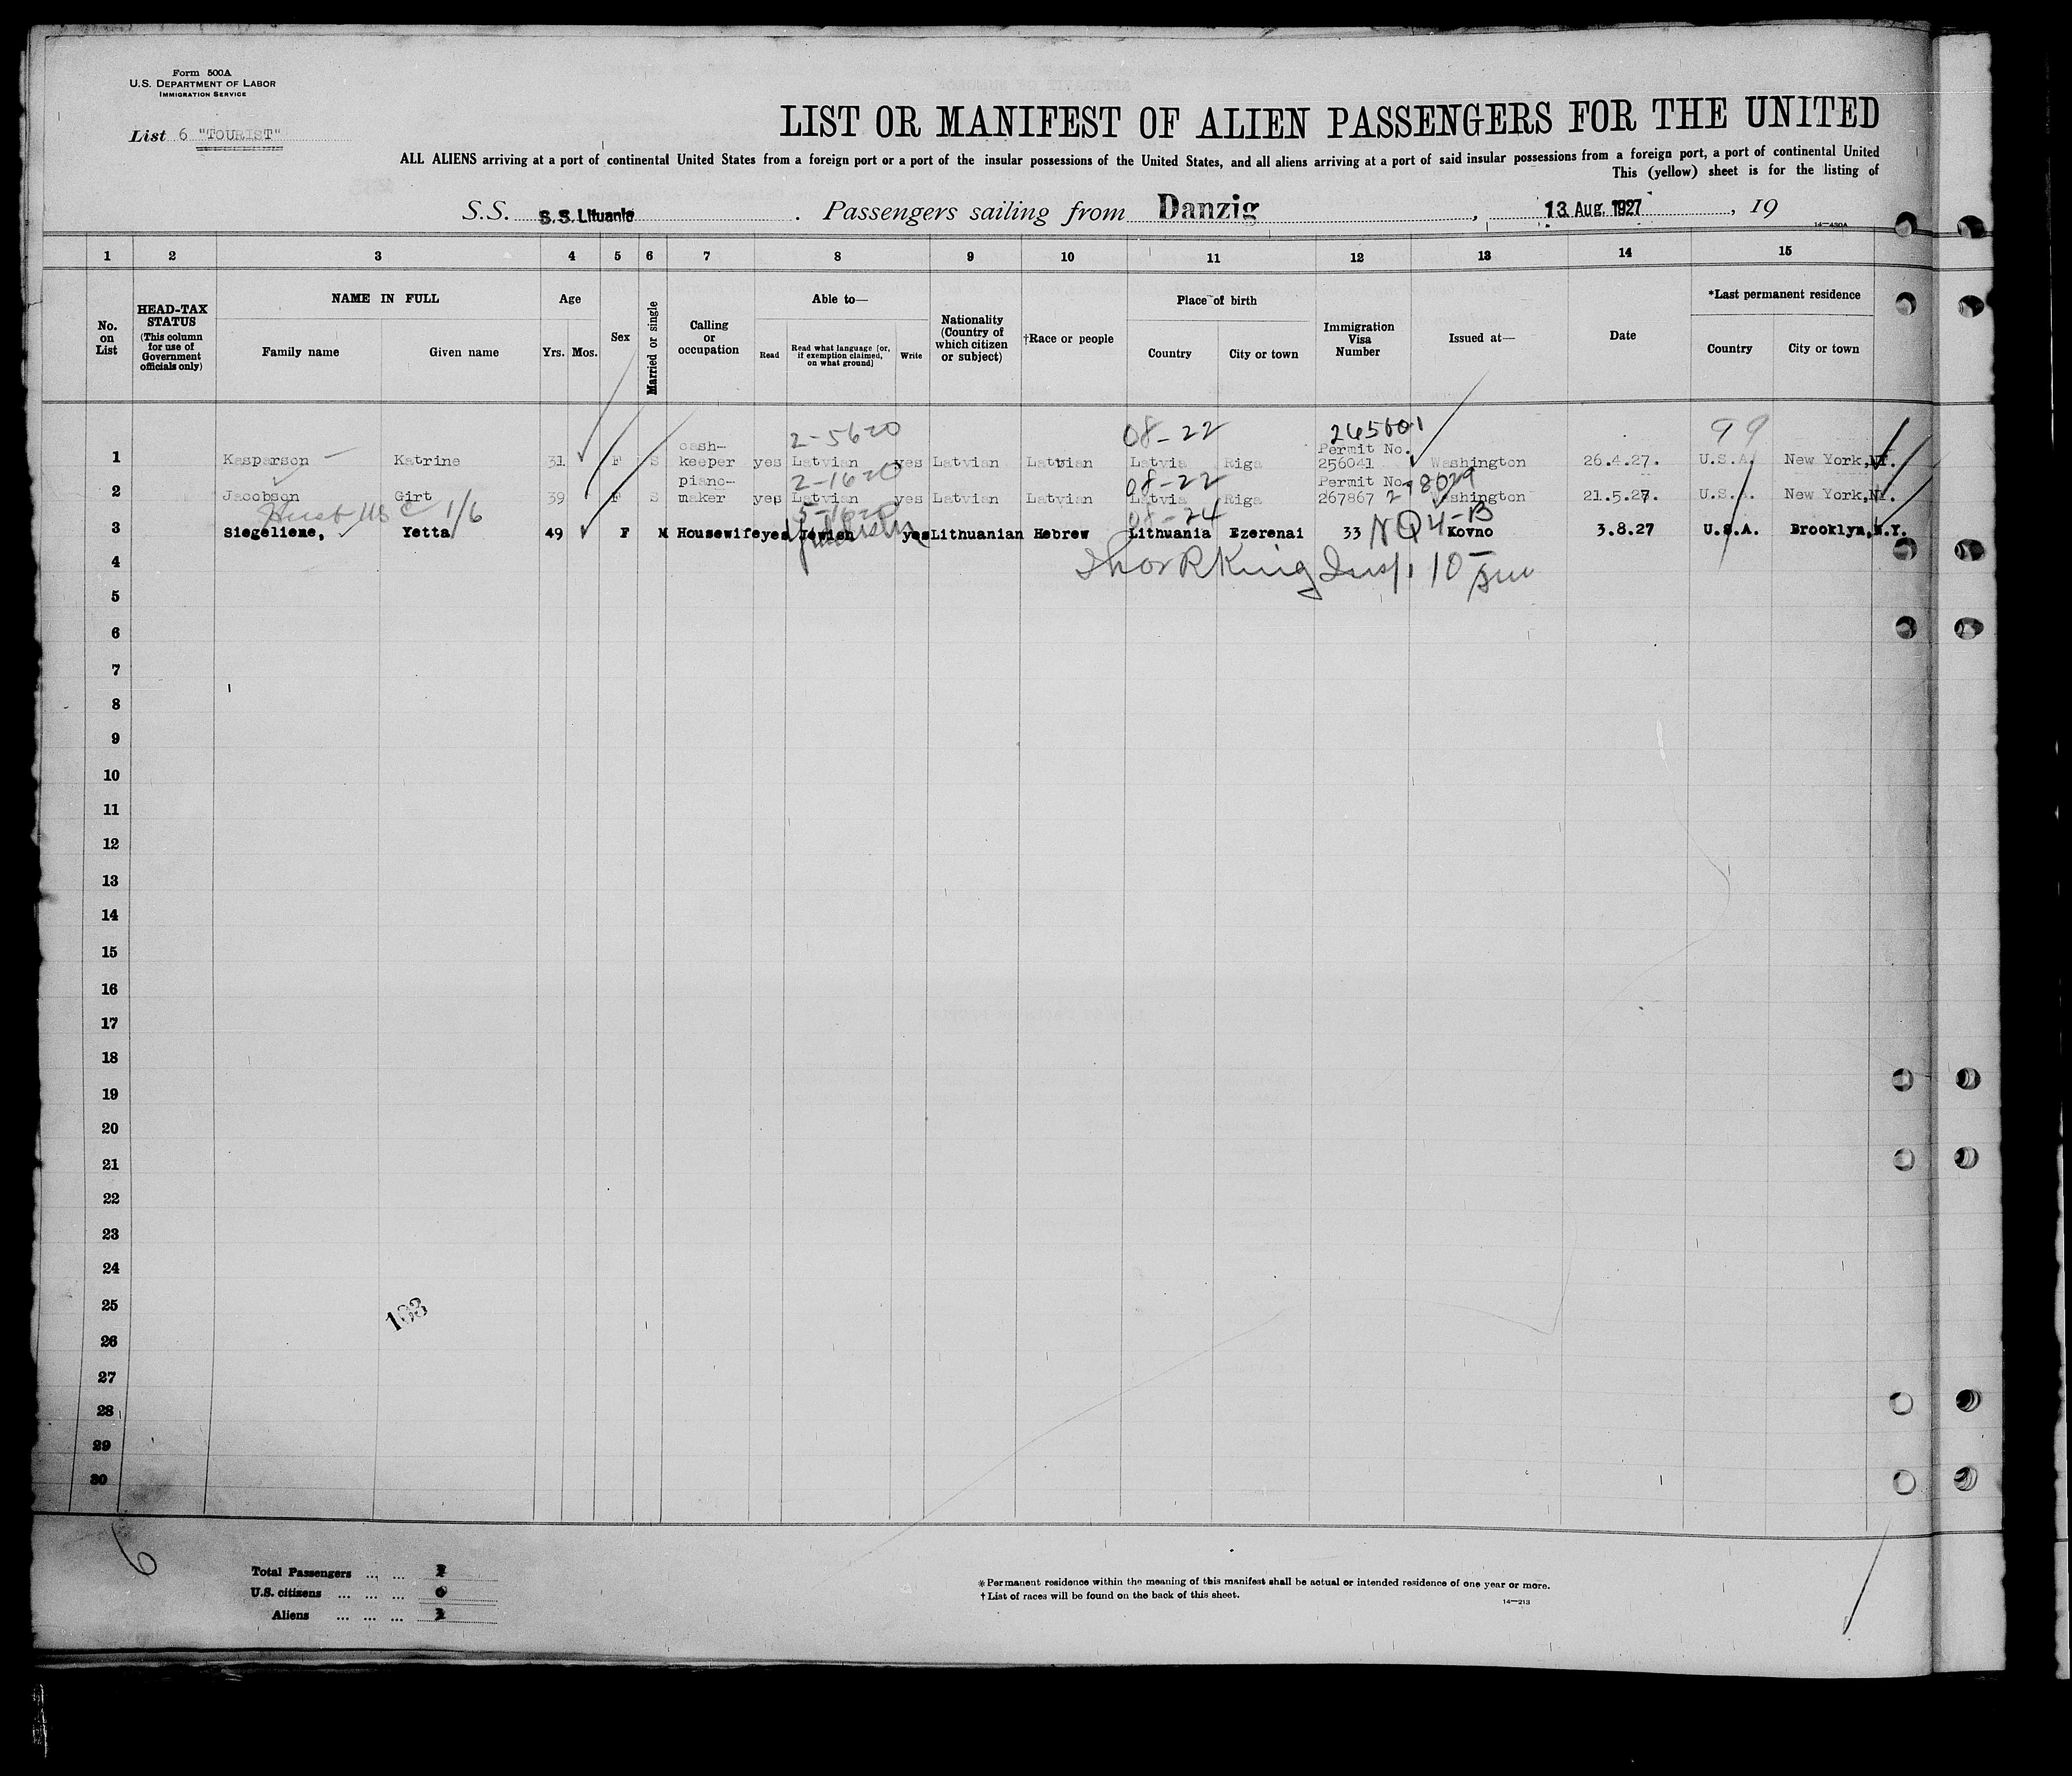 Form 500A
U.S. DEPARTMENT OF LABOR
IMMIGRATION SERVICE
List 6 "TOURIST"
LIST OR MANIFEST OF ALIEN PASSENGERS FOR THE UNITED
ALL ALIENS arriving at a port of continental United States from a foreign port or a port of the insular possessions of the United States, and all aliens arriving at a port of said insular possessions from a foreign port, a port of continental United
This (yellow) sheet is for the listing of
S.S. S.S. Lituania . Passengers sailing from Danzig , 13 Aug. 1927 , 19
14—430A
1 2 3 4 5 6 7 8 9 10 11 12 13 14 15
No. on List
HEAD-TAX STATUS (This column for use of Government officials only)
NAME IN FULL
Family name Given name
Age
Yrs. Mos.
Sex
Married or single
Calling or occupation
Able to—
Read Read what language [or, if exemption claimed, on what ground] Write
Nationality (Country of which citizen or subject)
†Race or people
Place of birth
Country City or town
Immigration Visa Number
Issued at—
Date
*Last permanent residence
Country City or town
2-5620 08-22 265601 99
1 Kasparson Katrine 31 F S cash-keeper yes Latvian yes Latvian Latvian Latvia Riga Permit No. 256041 Washington 26.4.27. U.S.A. New York,NY.
2-1620 08-22 278029
2 Jacobson Girt 39 F S piano-maker yes Latvian yes Latvian Latvian Latvia Riga Permit No. 267867 Washington 21.5.27. U.S.A. New York,NY.
Husb US C 1/6 5-1620 08-24 NQ 4-B
3 Siegeliene, Yetta 49 F M Housewife yes Jewish yes Lithuanian Hebrew Lithuania Ezerenai 33 Kovno 3.8.27 U.S.A. Brooklyn,N.Y.
King Insp. 10
4
5
6
7
8
9
10
11
12
13
14
15
16
17
18
19
20
21
22
23
24
25
183
26
27
28
29
30
6
Total Passengers ... ...
U.S. citizens ... ... ... 0
Aliens ... ... ...
*Permanent residence within the meaning of this manifest shall be actual or intended residence of one year or more.
†List of races will be found on the back of this sheet.
14—213